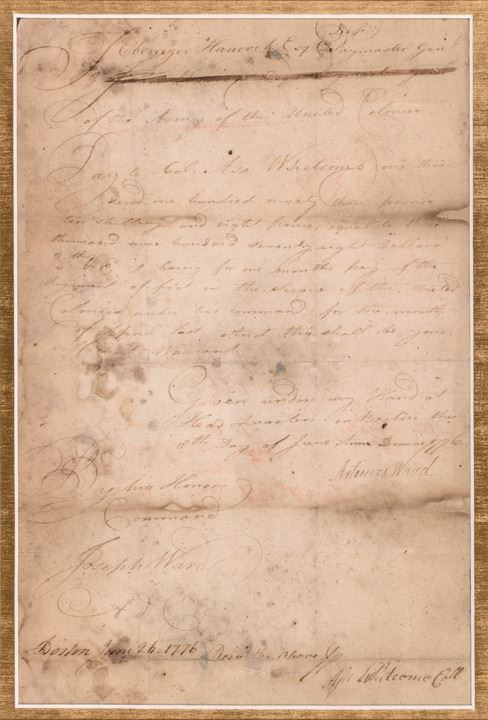 Depy
To Ebenezer Hancock Esq Paymaster Genl
of the Army of the United Colonies
Pay to Col. Asa Whetcomb one thou
sand one hundred ninety three pounds
ten shillings and eight pence, equal to three
thousand nine hundred seventy eight Dollars
being for one months pay of the
Regiment of foot in the service of the United
Colonies under his command for the month
of April last. And this shall be your
Warrant
Given under my Hand at
Head Quarters in Boston this
8th Day of June Anno Domini 1776
Artemas Ward
By his Honors
Command
Joseph Ward
Boston June 26. 1776 Recd the above
Asa Whetcomb Coll